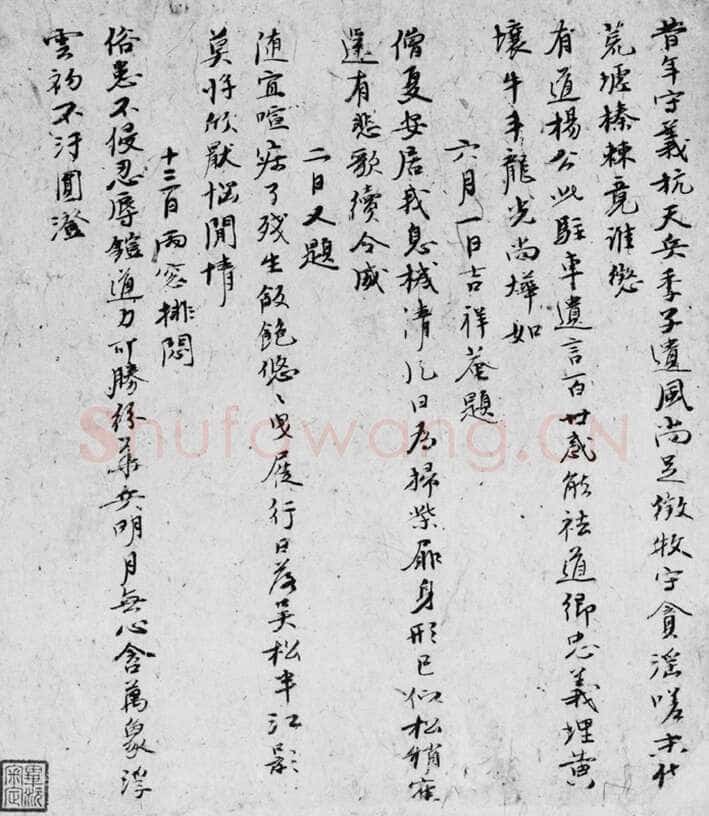 昔年守義抗天兵季子遺風尚足徵牧守貪淫嗟末代
荒墟榛棘竟誰懲
有道楊公此駐車遺言百世感能祛道鄉忠義埋黃
壤牛斗龍光尚燁如
六月一日吉祥菴題
僧夏安居我息機清風日為掃柴扉身形已似松梢寉
還有悲歌續令威
二日又題
隨宜喧寂了殘生飯飽悠々曳屣行日落吳松半江影
莫將欣厭惱閒情
十三日雨窗排悶
俗患不侵忍辱鎧道力可勝紛華兵明月無心含萬象浮
雲初不汙圓澄
畢瀧審定
Shufawang.CN